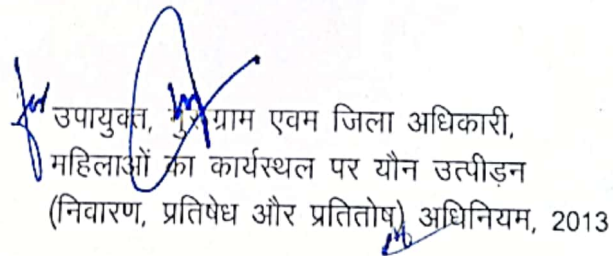 उपायुक्त, गुरुग्राम एवम जिला अधिकारी,
महिलाओं का कार्यस्थल पर यौन उत्पीड़न
(निवारण, प्रतिषेध और प्रतितोष) अधिनियम, 2013